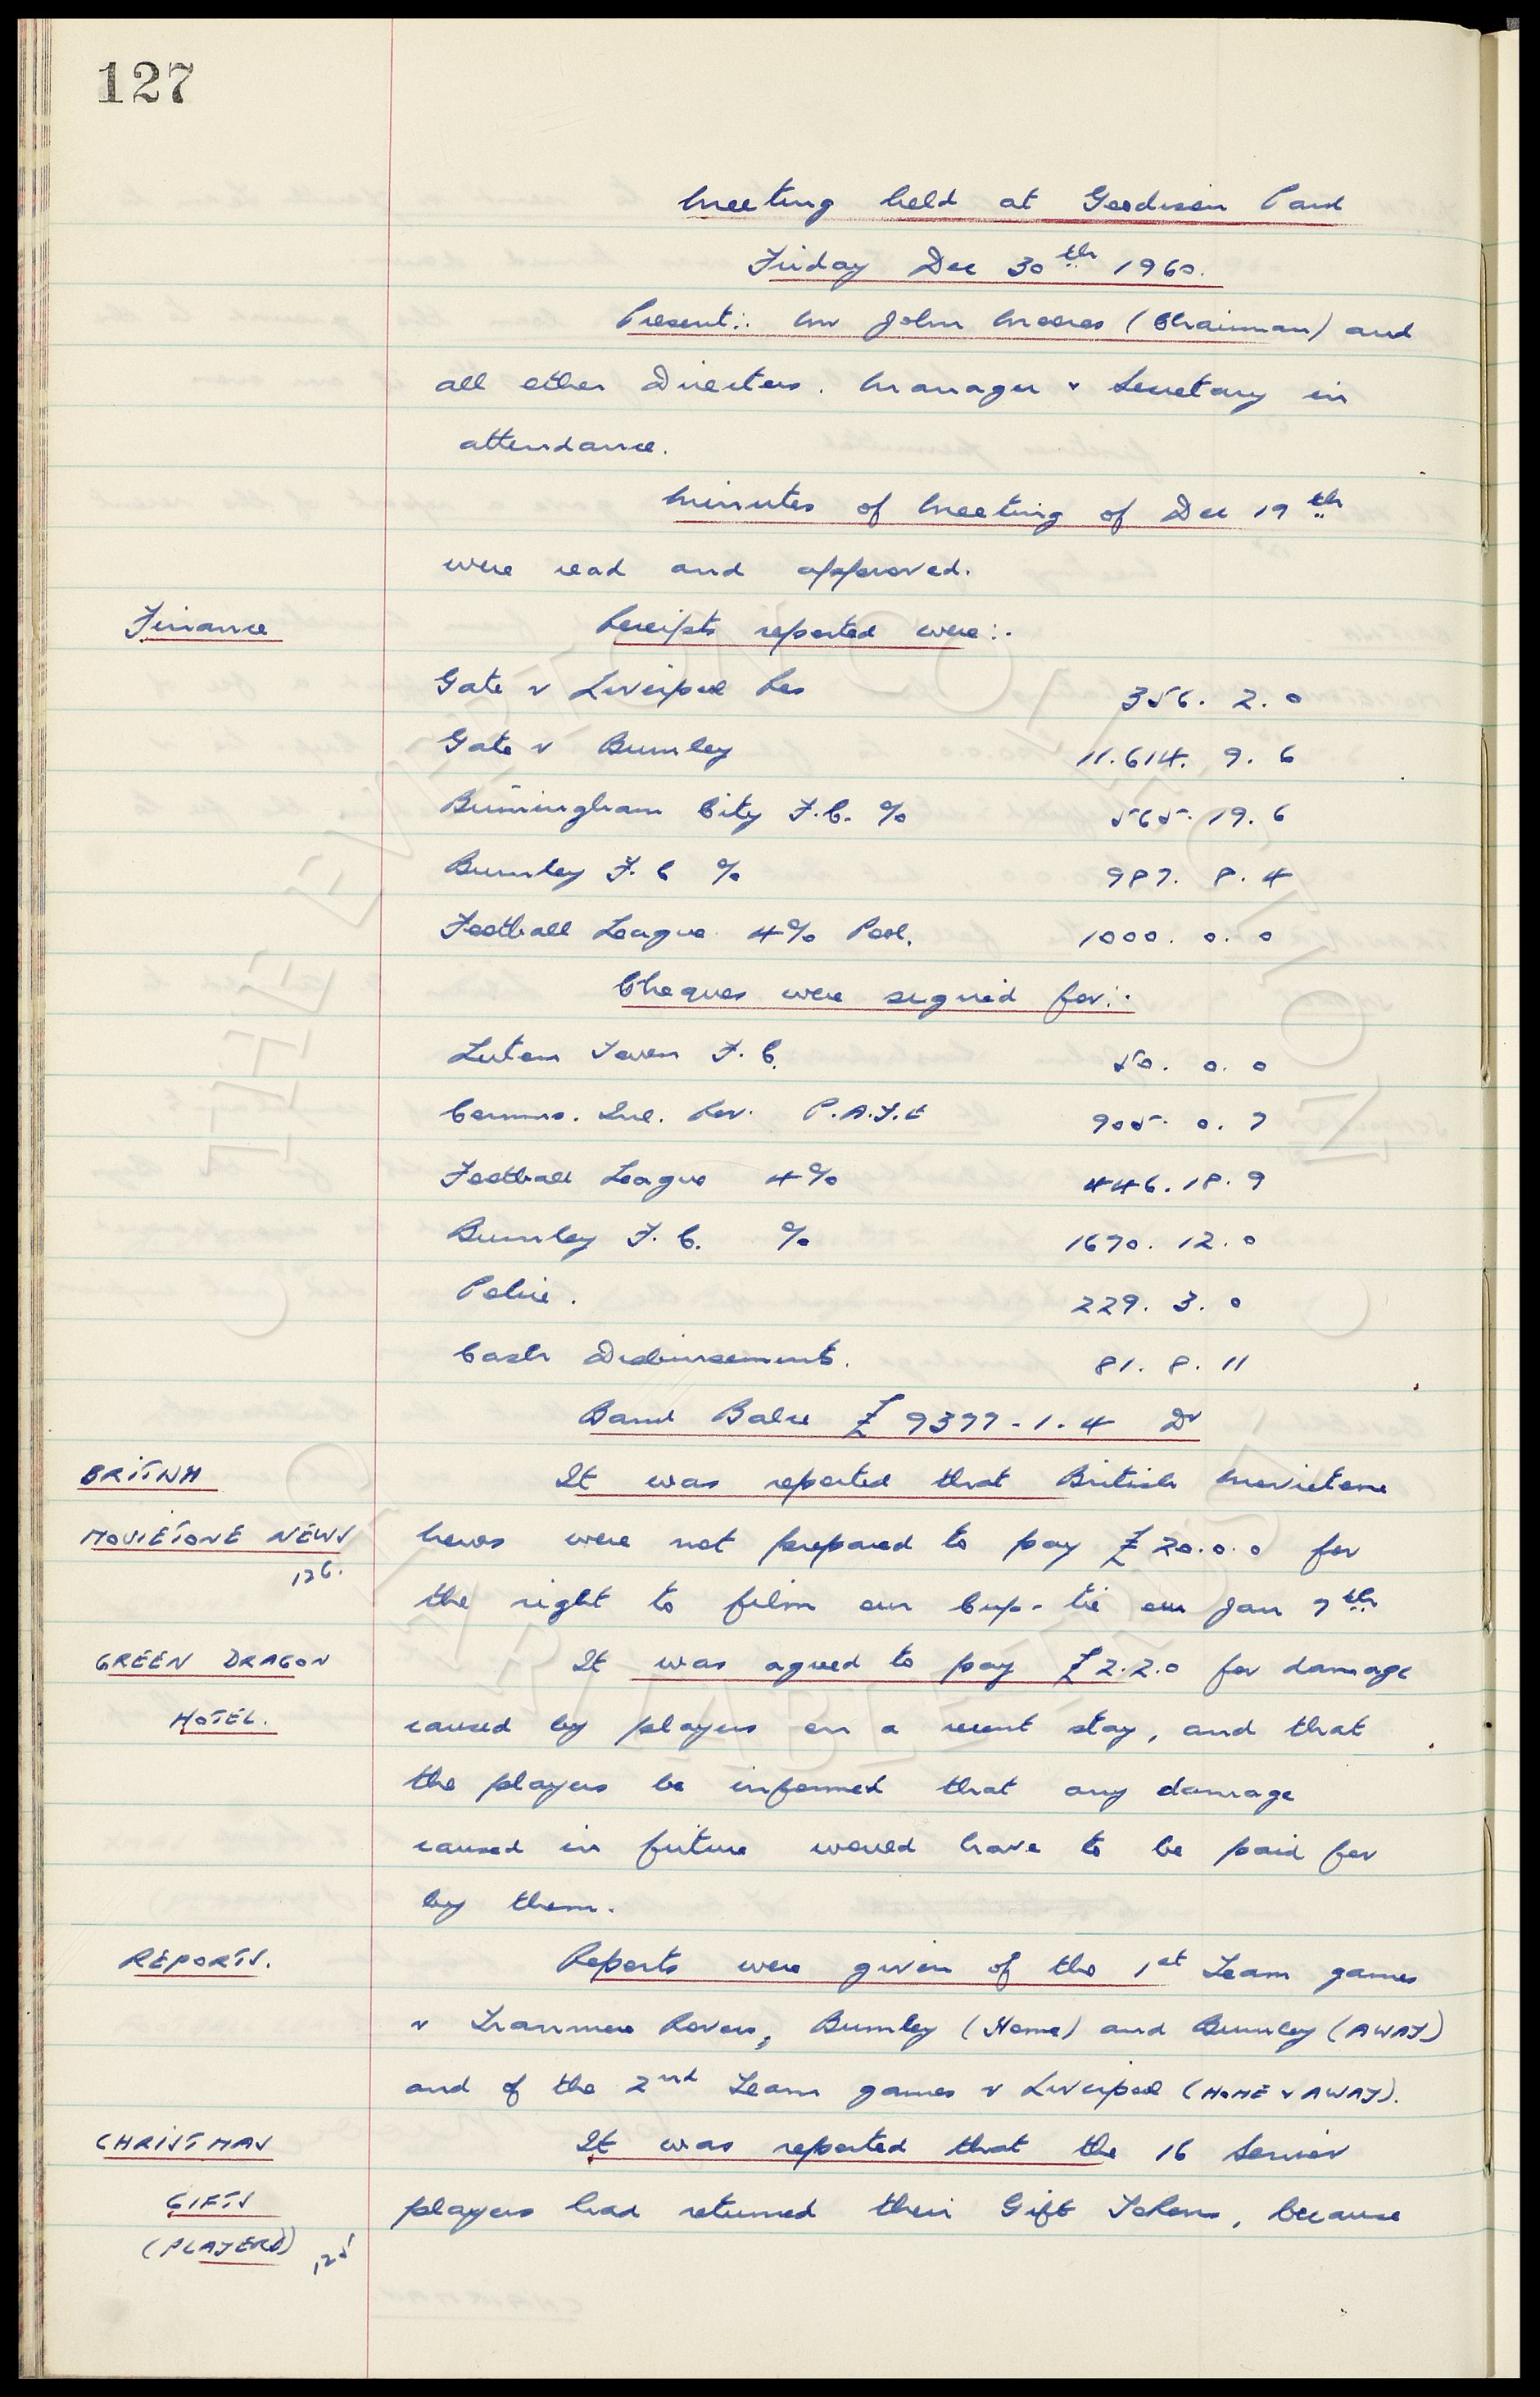 127
Meeting held at Goodison Park
Friday Dec 30th 1960.
Present:. Mr John Moores (Chairman) and
all other Directors. Manager & Secretary in
attendance.
Minutes of Meeting of Dec 19th
were read and approved.
Finance Receipts reported were:.
Gate v Liverpool Res 356. 2. 0
Gate v Burnley 11.614. 9. 6
Birmingham City F.C. % 565. 19. 6
Burnley F.C % 987. 8. 4
Football League 4% Pool. 1000. 0. 0
Cheques were signed for:.
Luton Town F.C. 50. 0. 0
Comms. Inl. Rev. P.A.Y.E 905. 0. 7
Football League 4% 446. 18. 9
Burnley F.C. % 1670. 12. 0
Police. 229. 3. 0
Cash Disbursements. 81. 8. 11
Bank Balce £9377-1.4 Dr
BRITISH It was reported that British Movietone
MOVIETONE NEWS News were not prepared to pay £20.0.0 for
126. the right to film our Cup-tie on Jan 7th
GREEN DRAGON It was agreed to pay £2.2.0 for damage
HOTEL. caused by players on a recent stay, and that
the players be informed that any damage
caused in future would have to be paid for
by them.
REPORTS. Reports were given of the 1st Team games
v Tranmere Rovers, Burnley (Home) and Burnley (AWAY)
and of the 2nd Team games v Liverpool (HOME & AWAY).
CHRISTMAS It was reported that the 16 Senior
GIFTS players had returned their Gift Tokens, because
(PLAYERS) 125